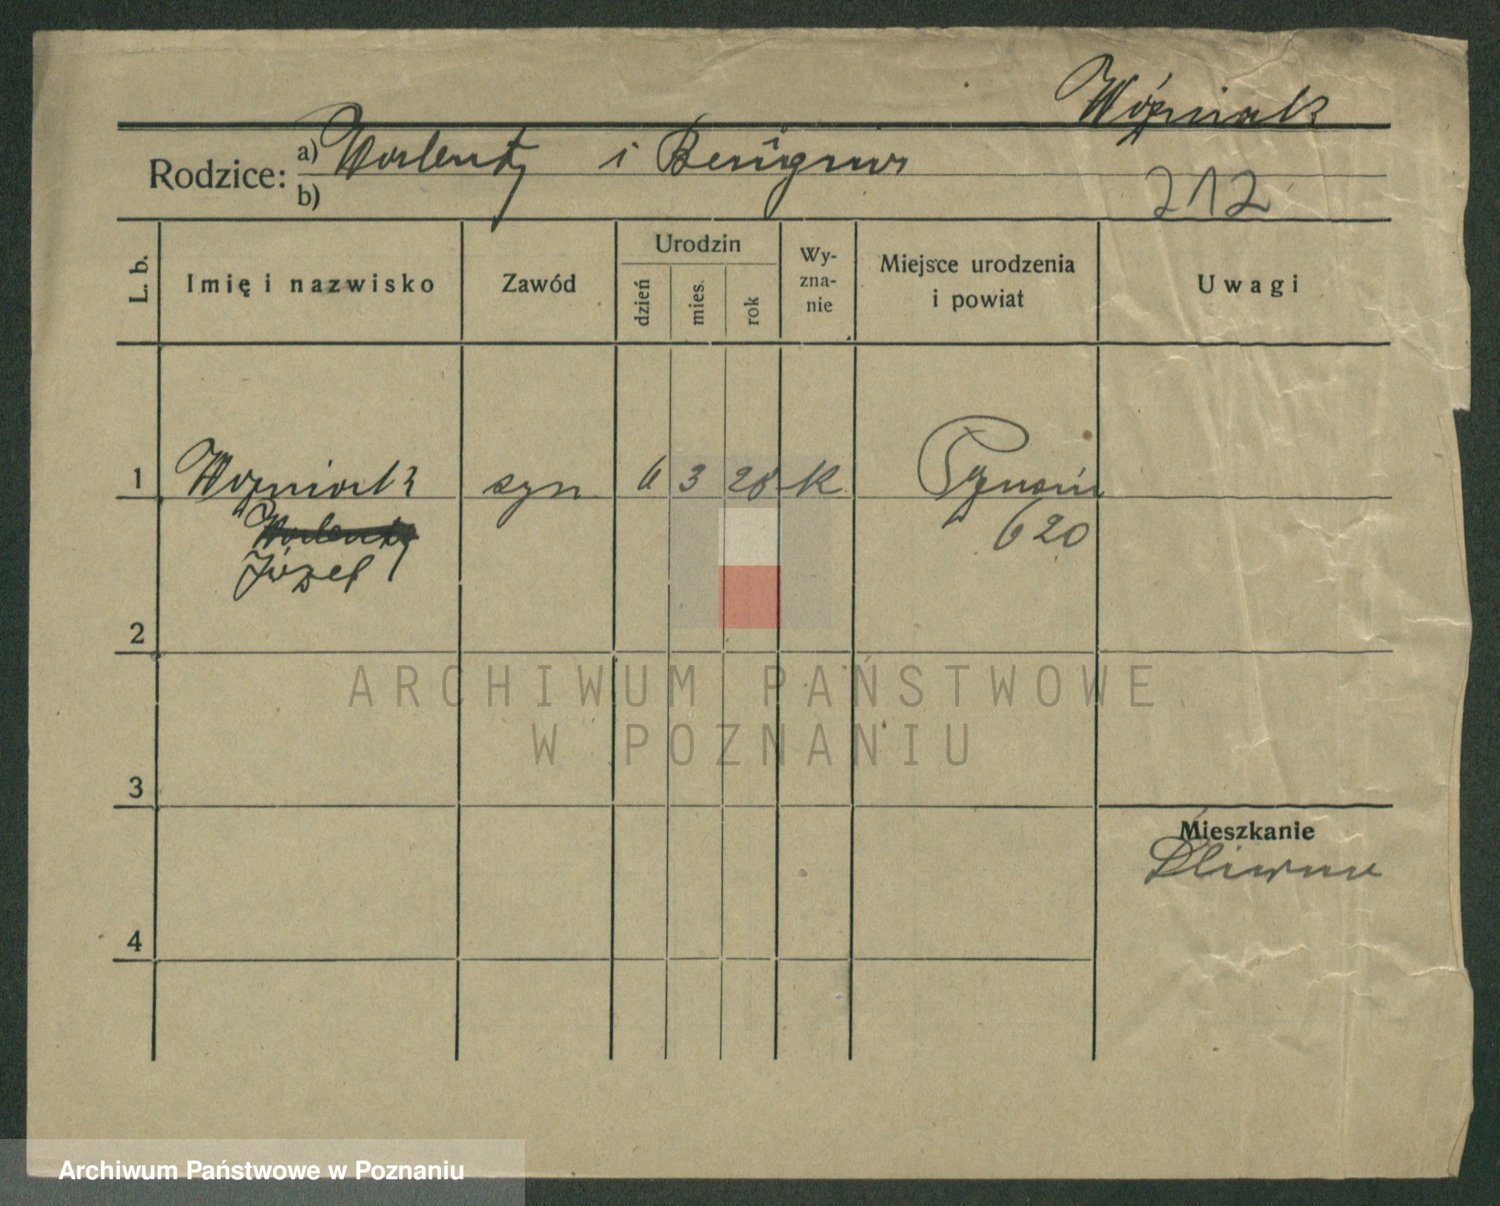 Woźniak
Rodzice: a) Walenty i Benigna
b)
212
L. b. Imię i nazwisko Zawód Urodzin dzień mies. rok Wy-zna-nie Miejsce urodzenia i powiat Uwagi
1 Woźniak syn 6 3 28 k
Walenty 620
Józef
2
ARCHIWUM PAŃSTWOWE
W POZNANIU
3
Mieszkanie
Śliwna
4
Archiwum Państwowe w Poznaniu